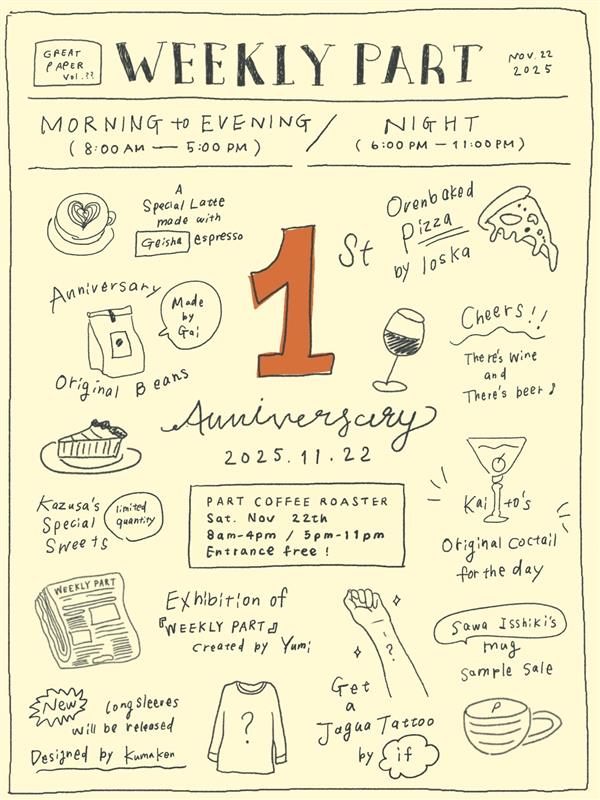 GREAT
PAPER
Vol.??
WEEKLY PART
NOV. 22
2025
MORNING to EVENING
(8:00 AM — 5:00 PM)
NIGHT
(6:00 PM — 11:00 PM)
A
Special Latte
made with
Geisha espresso
Anniversary
Made
by
Gai
Original Beans
1st
Anniversary
2025.11.22
Ovenbaked
Pizza
by Ioska
Cheers!!
There's wine
and
There's beer♪
Kazusa's
Special
Sweets
limited
quantity
PART COFFEE ROASTER
Sat. Nov 22th
8am-4pm / 5pm-11pm
Entrance free!
Kaito's
Original Coctail
for the day
WEEKLY PART
Exhibition of
『WEEKLY PART』
created by Yumi
?
Get
a
Jagua Tattoo
by if
Sawa Isshiki's
mug
Sample Sale
P
New
longsleeves
will be released
Designed by Kumaken
?